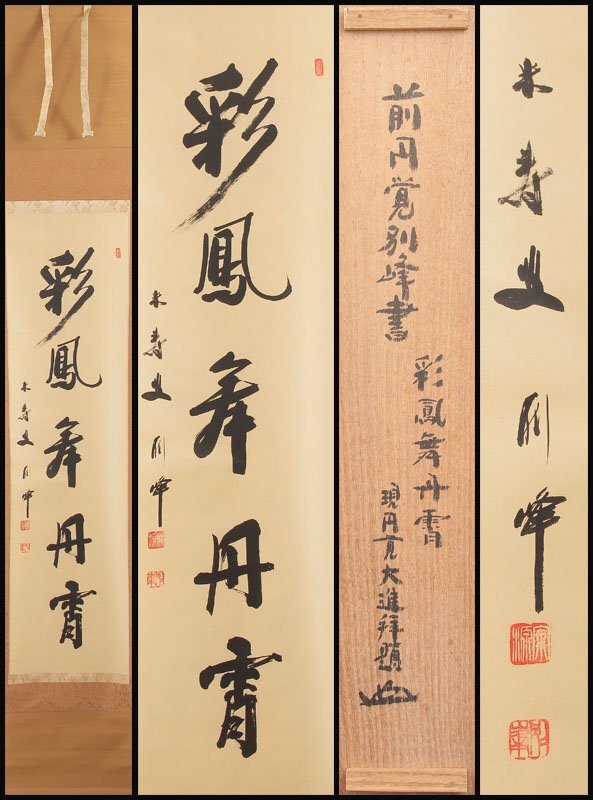 彩鳳舞丹霄
米寿叟 別峰
彩鳳舞丹霄
米寿叟 別峰
彩鳳舞丹霄
前円覚別峰書
現円覚大進拝題
米寿叟 別峰